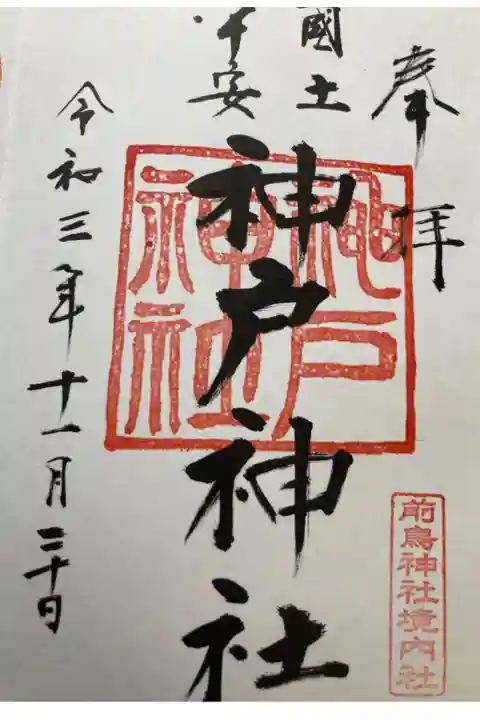 奉拝
國土
平安
神戸神社
神戸
神社
前鳥神社境内社
令和三年十一月三十日